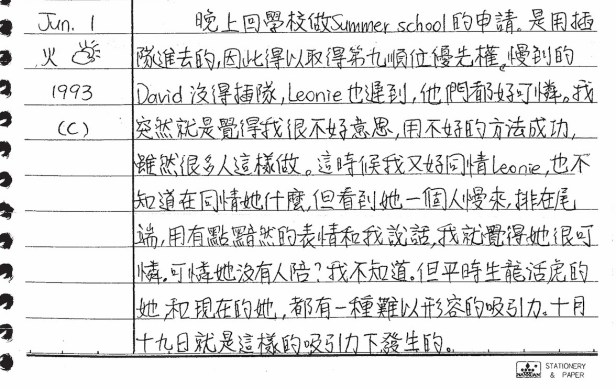 Jun. 1 晚上回學校做Summer school的申請。是用插
火 隊進去的,因此得以取得第九順位優先權。慢到的
1993 David 沒得插隊,Leonie也遲到,他們都好可憐。我
(C) 突然就是覺得我很不好意思,用不好的方法成功,
雖然很多人這樣做。這時候我又好同情Leonie,也不
知道在同情她什麼,但看到她一個人慢來,排在尾
端,用有點黯然的表情和我說話,我就覺得她很可
憐。可憐她沒有人陪?我不知道。但平時生龍活虎的
她,和現在的她,都有一種難以形容的吸引力。十月
十九日就是這樣的吸引力下發生的。
STATIONERY
& PAPER